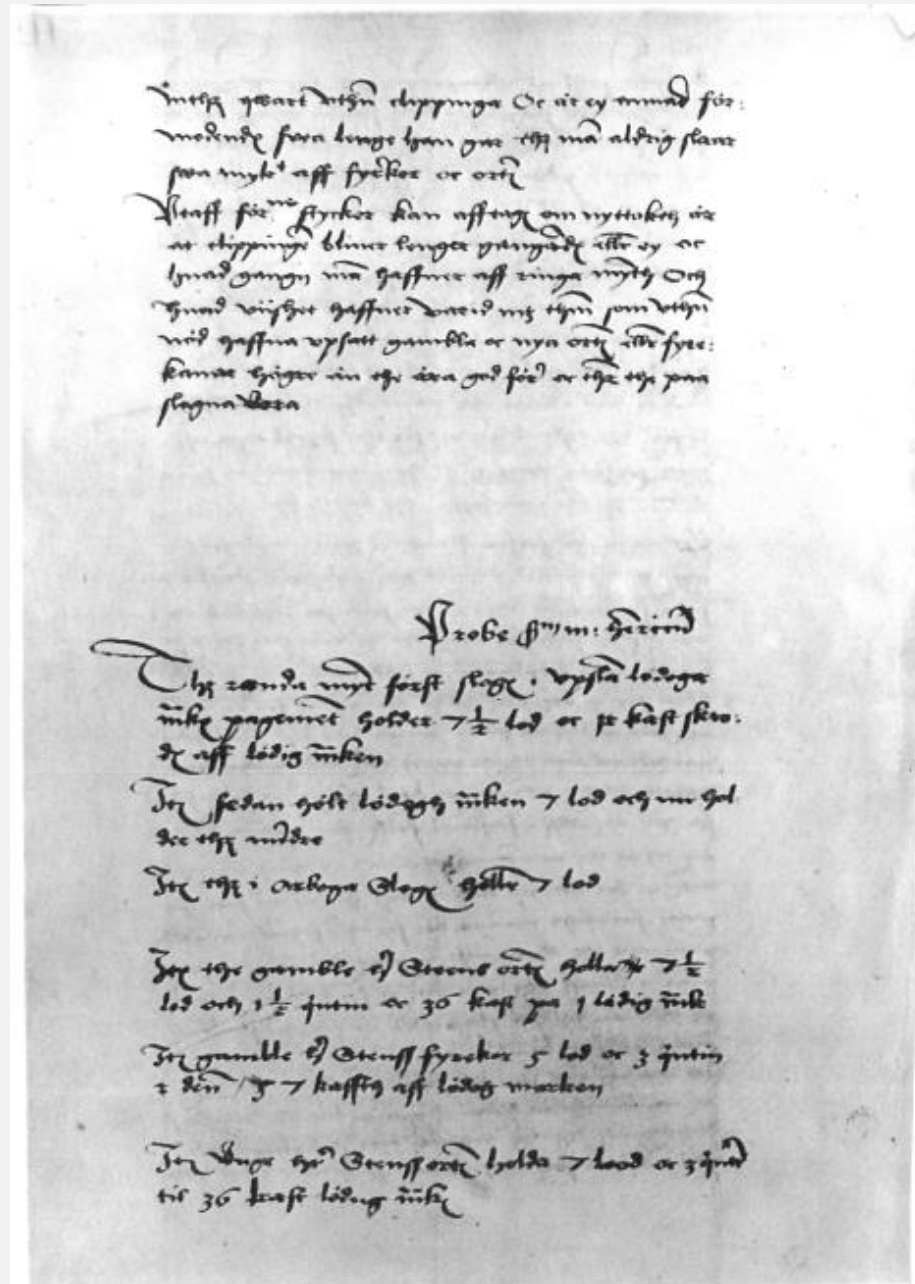 inthet qwart vthen clippinga Oc är ey annad för:
modendes swa lenge han gar thet man aldrig slaar
swa myket aff fyrker oc orter
Vtaff förne stycker kan afftages om nyttoket är
at clippingen bliuer lenger gangendes eller ey oc
huad gangn man haffuer aff ringa mynth Och
huad viishet haffuer varid mz them som vthen
nöd haffua vpsatt gambla oc nya orter eller fyre:
kanar högre än the ära god före oc ther the paa
slagna vora
Probe her m: Henricum
Thet runda mynt först slaget i vpsala lödoga
marken pagement holder 7 1/2 lod oc kast skro:
des aff lödig marken
Item sedan hölt lödogh marken 7 lod och nu hol
der thet mindre
Item thet i Arboga Slaget holler 7 lod
Item the gamble her Stens orter holla 7 1/2
lod och 1 1/2 quintin oc 36 kast pa 1 lödig mark
Item gamble her Stenss fyreker 5 lod oc 3 quintin
2 den 7 kasth aff lödog marken
Item Vnge her Stenss orter holda 7 lood oc 3 quintin
til 36 kast lödug marken